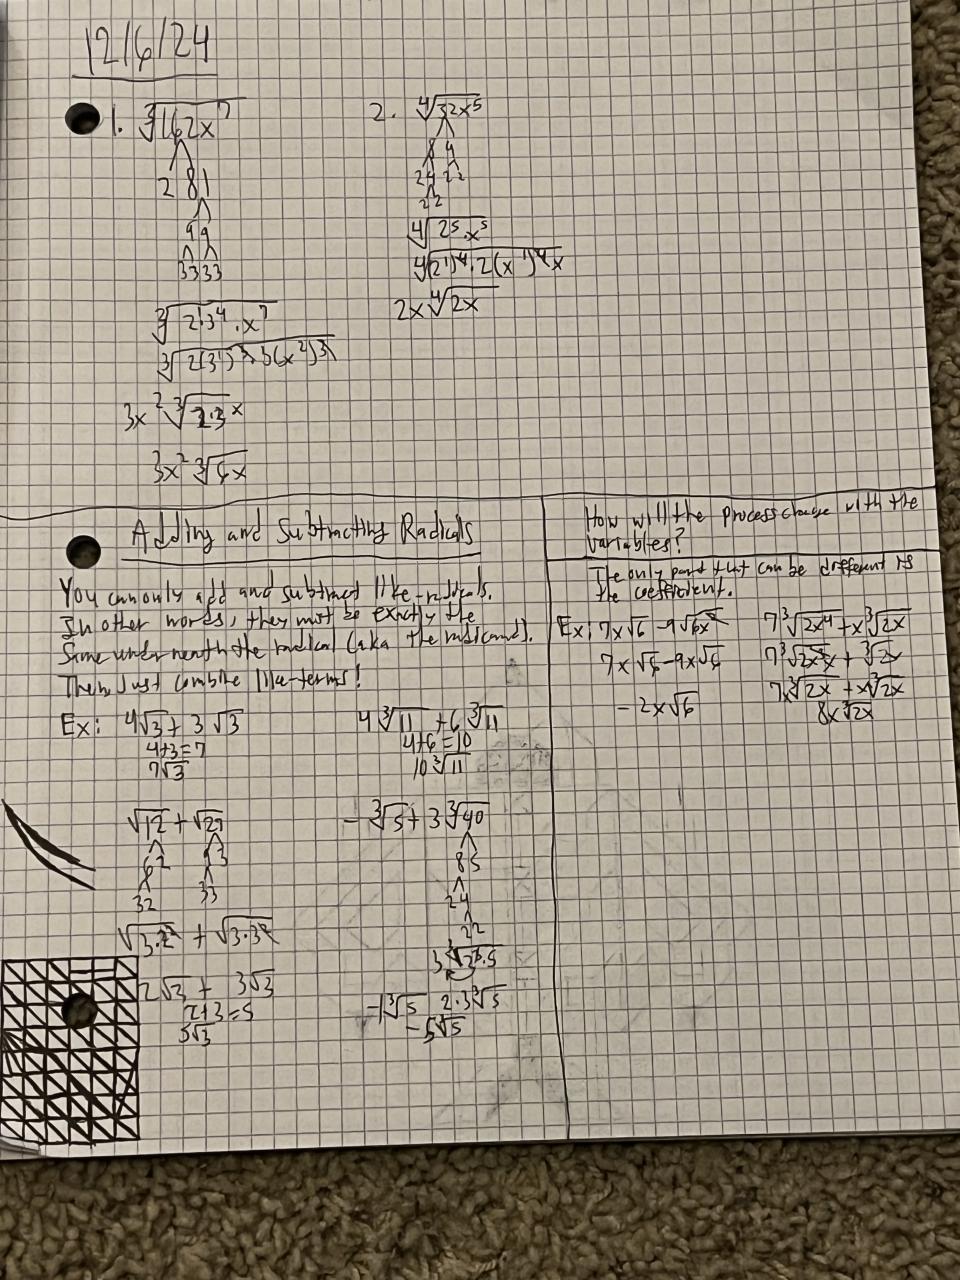 12/6/24
1. ∛162x⁷
2 81
9 9
3 3 3 3
∛2¹3⁴·x⁷
∛2(3¹)³·3(x²)³
3x² ∛2·3 x
3x² ∛6x
2. ∜32x⁵
8 4
2 4 2 2
2 2
∜2⁵·x⁵
∜(2¹)⁴·2(x¹)⁴x
2x ∜2x
Adding and Subtracting Radicals
You can only add and subtract like-radicals.
In other words, they must be exactly the
same underneath the radical (aka the radicand).
Then, Just combine like-terms!
Ex: 4√3 + 3√3
4+3=7
7√3
4∛11 + 6∛11
4+6=10
10∛11
√12 + √27
6 2 9 3
3 2 3 3
√3·2² + √3·3²
2√3 + 3√3
2+3=5
5√3
-∛5 + 3∛40
8 5
2 4
2 2
3∛2³·5
-1∛5 2·3∛5
-5∛5
How will the process change with the
variables?
The only part that can be different is
the coefficient.
Ex: 7x√6 - 9√6x²
7x√6 - 9x√6
-2x√6
7∛2x⁴ + x∛2x
7∛2x³x + ∛2x
7x∛2x + x∛2x
8x∛2x